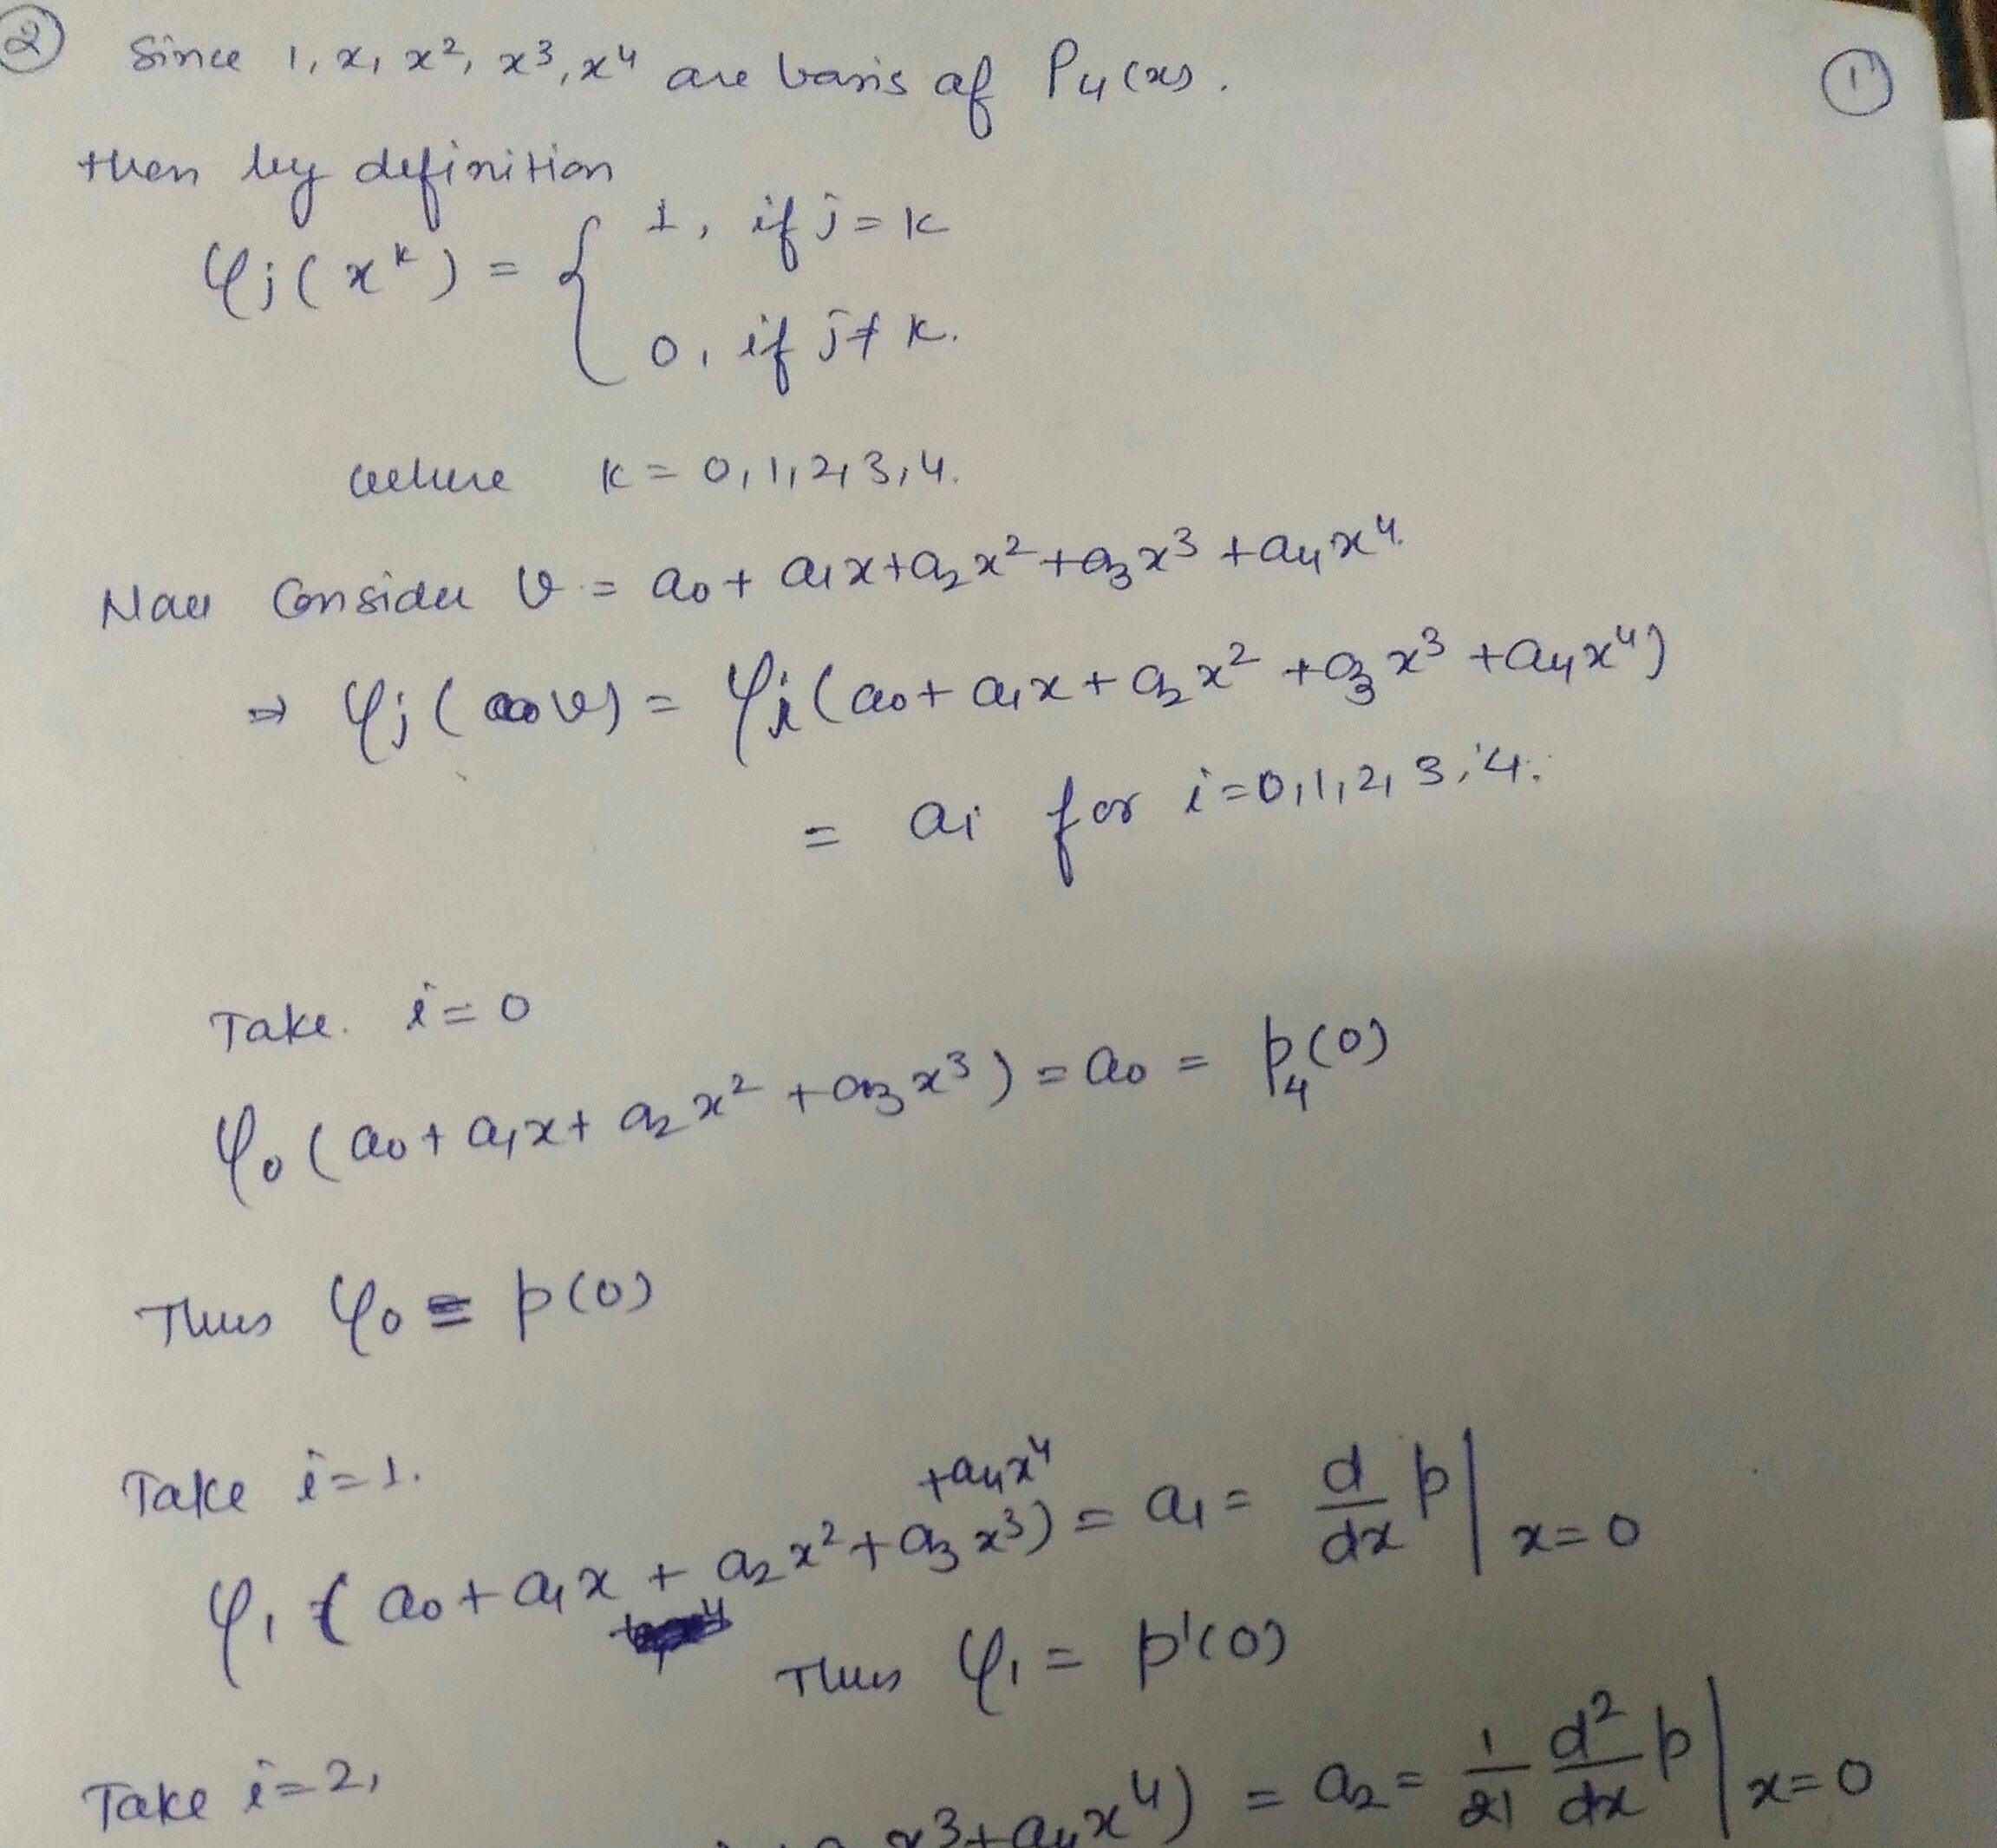 ② Since 1, x, x², x³, x⁴ are basis of P₄(x).
①
then by definition
φj(xᵏ) = { 1, if j = k
0, if j ≠ k.
where k = 0, 1, 2, 3, 4.
Now Consider v = a₀ + a₁x + a₂x² + a₃x³ + a₄x⁴.
⇒ φj(v) = φi(a₀ + a₁x + a₂x² + a₃x³ + a₄x⁴)
= ai for i = 0, 1, 2, 3, 4.
Take. i = 0
φ₀(a₀ + a₁x + a₂x² + a₃x³) = a₀ = p₄(0)
Thus φ₀ = p(0)
Take i = 1.
+a₄x⁴
φ₁(a₀ + a₁x + a₂x² + a₃x³) = a₁ = d/dx p|x=0
Thus φ₁ = p'(0)
Take i = 2,
x³ + a₄x⁴) = a₂ = 1/2! d²/dx p|x=0